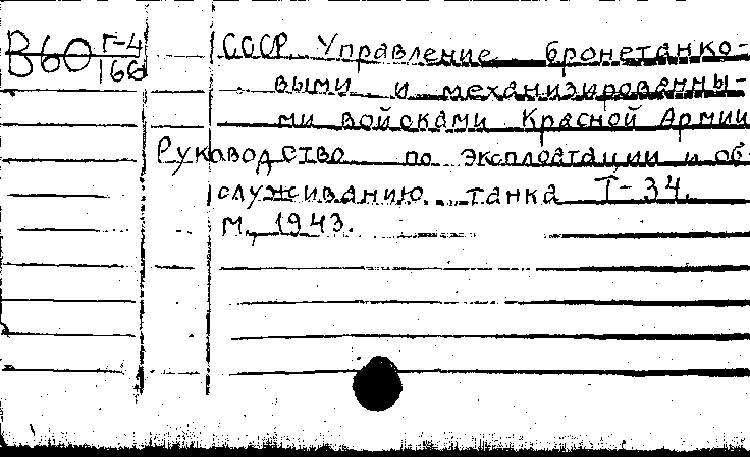 В60 Г-4
166
СССР. Управление бронетанко-
выми и механизированны-
ми войсками Красной Армии
Руководство по эксплоатации и об
служиванию танка Т-34.
М., 1943.